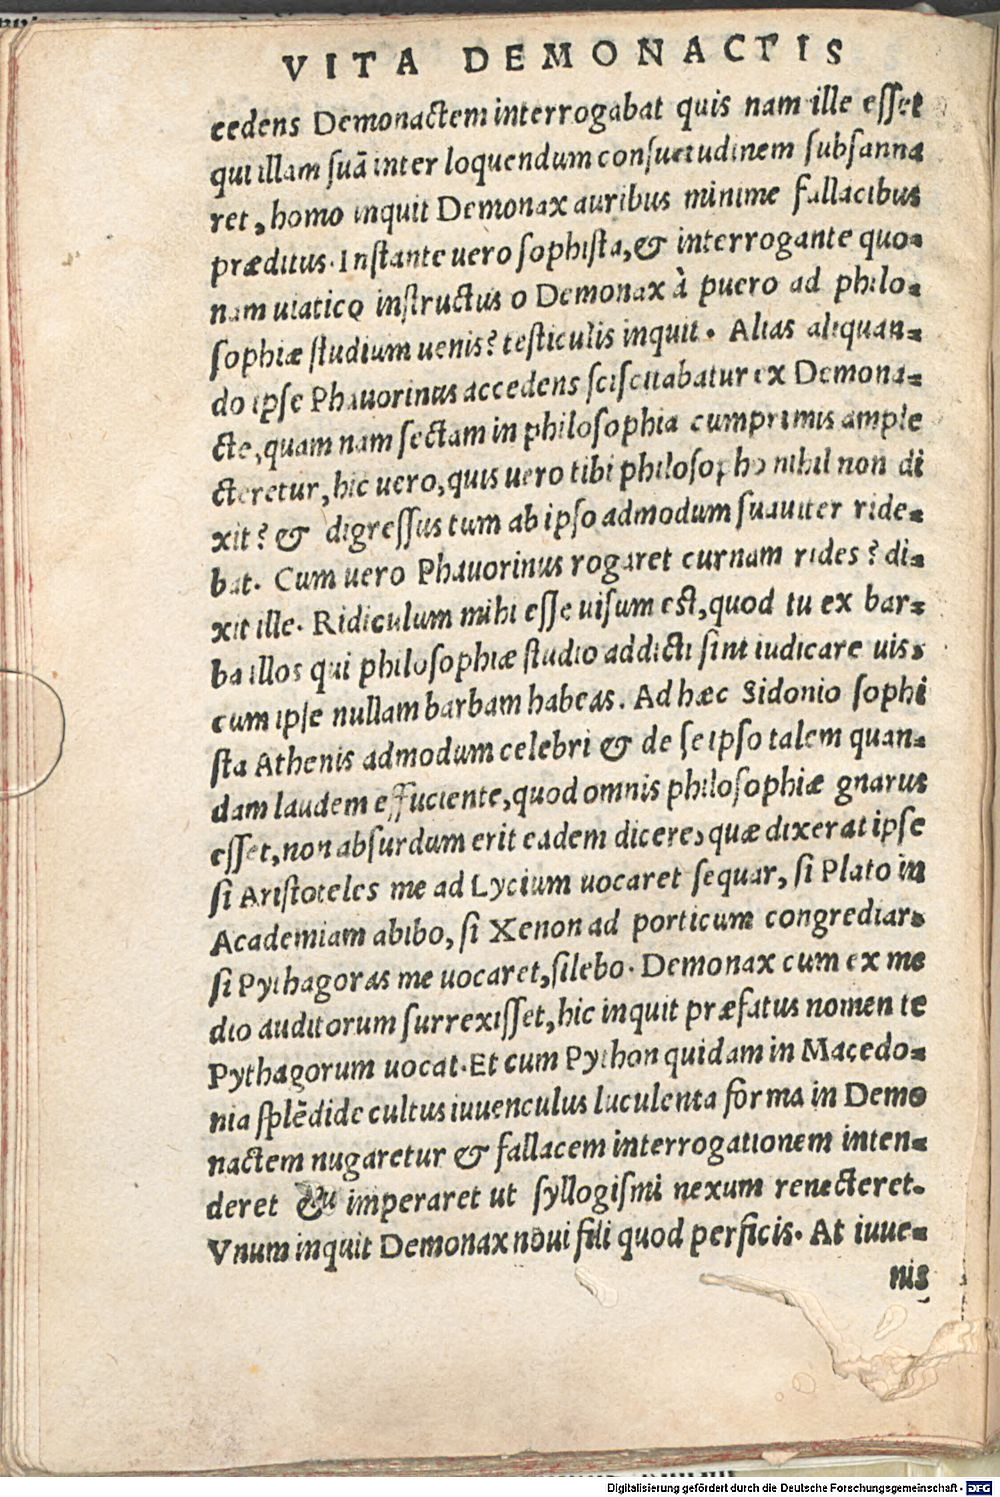 VITA DEMONACTIS
cedens Demonactem interrogabat quis nam ille esset
qui illam suā inter loquendum consuetudinem subsanna
ret, homo inquit Demonax auribus minime fallacibus
præditus. Instante uero sophista, & interrogante quo-
nam uiatico instructus o Demonax à puero ad philo-
sophiæ studium uenis? testiculis inquit. Alias aliquan-
do ipse Phauorinus accedens sciscitabatur ex Demona-
cte, quam nam sectam in philosophia cumprimis ample
cteretur, hic uero, quis uero tibi philosopho nihil non di
xit? & digressus tum ab ipso admodum suauiter ride-
bat. Cum uero Phauorinus rogaret curnam rides? di-
xit ille. Ridiculum mihi esse uisum est, quod tu ex bar-
ba illos qui philosophiæ studio addicti sint iudicare uis,
cum ipse nullam barbam habeas. Ad hæc Sidonio sophi
sta Athenis admodum celebri & de se ipso talem quan-
dam laudem effuciente, quod omnis philosophiæ gnarus
esset, non absurdum erit eadem dicere, quæ dixerat ipse
si Aristoteles me ad Lycium uocaret sequar, si Plato in
Academiam abibo, si Xenon ad porticum congrediar,
si Pythagoras me uocaret, silebo. Demonax cum ex me
dio auditorum surrexisset, hic inquit præfatus nomen te
Pythagorum uocat. Et cum Python quidam in Macedo-
nia splēdide cultus iuuenculus luculenta forma in Demo
nactem nugaretur & fallacem interrogationem inten-
deret imperaret ut syllogismi nexum renecteret.
Vnum inquit Demonax noui fili quod perficis. At iuue-
nis
Digitalisierung gefördert durch die Deutsche Forschungsgemeinschaft - DFG